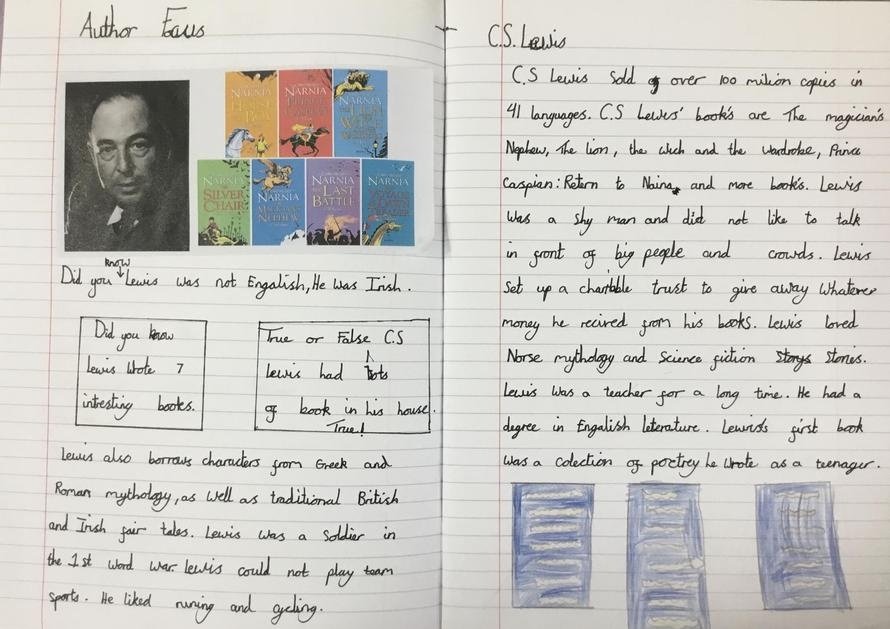 Author Focus
NARNIA
HORSE
BOY
NARNIA
PRINCE
CASPIAN
NARNIA
THE LION
WITCH
WARDROBE
NARNIA
SILVER
CHAIR
NARNIA
THE
MAGICIAN'S
NEPHEW
NARNIA
THE LAST
BATTLE
NARNIA
VOYAGE
DAWN
TREADER
know
Did you Lewis was not Engalish, He was Irish.
Did you know
Lewis wrote 7
intresting books.
True or False C.S
Lewis had lots
of book in his house.
True!
Lewis also borrows characters from Greek and
Roman mythology, as well as traditional British
and Irish fair tales. Lewis was a Soldier in
the 1st word war. Lewis could not play team
sports. He liked runing and cycling.
C.S. Lewis
C.S Lewis Sold of over 100 milion copies in
41 languages. C.S Lewis' book's are The magician's
Nephew, The lion, the wich and the wardroke, Prince
Caspian: Retern to Naina, and more book's. Lewis
was a shy man and did not like to talk
in front of big people and crowds. Lewis
set up a charitble trust to give away whatever
money he recived from his books. Lewis loved
Norse mythology and Science fiction Storys Stories.
Lewis was a teacher for a long time. He had a
degree in Engalish leterature. Lewis's first book
was a colection of poetrey he wrote as a teenager.